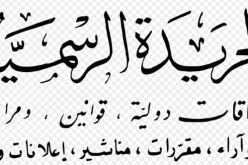 جريدة الرسمي
اقات دولية ، قوانين ، ومرا
آراء ، مقررات ، مناشير ، إعلانات و